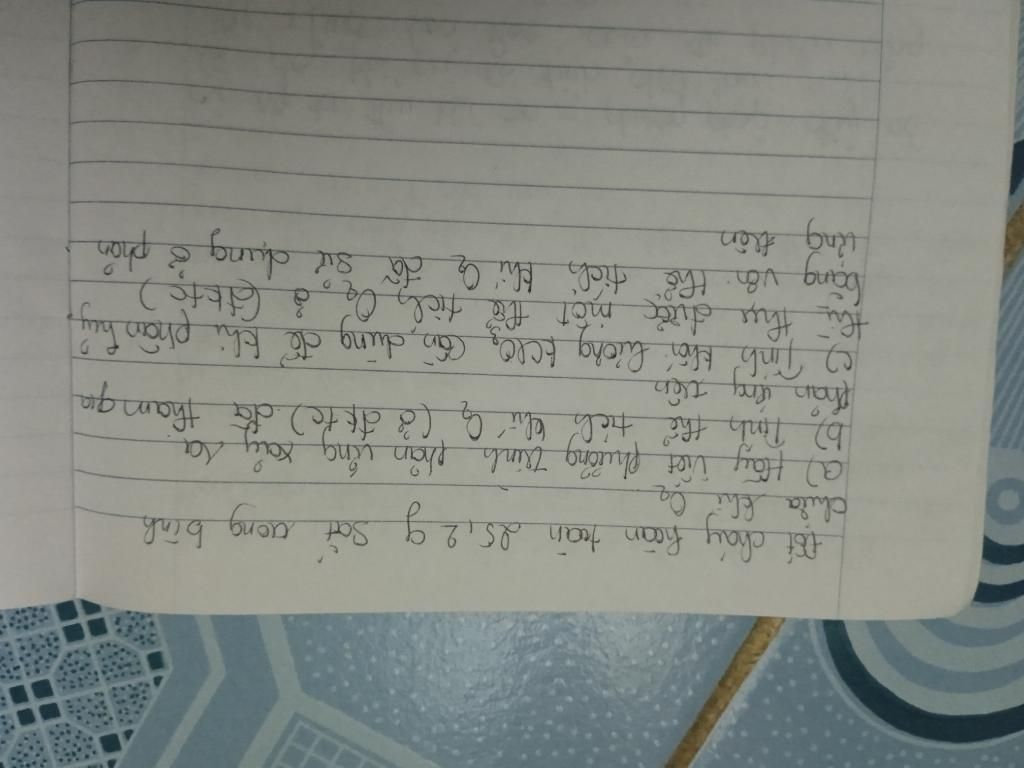 Đốt cháy hoàn toàn 25,2 g Sắt trong bình
chứa khí O₂
a) Hãy viết phương trình phản ứng xảy ra
b) Tính thể tích khí O₂ (ở đktc) đã tham gia
phản ứng trên
c) Tính khối lượng KClO₃ cần dùng để khi phân huỷ
thì thu được một thể tích O₂ ở (đktc)
bằng với thể tích khí O₂ đã sử dụng ở phản
ứng trên